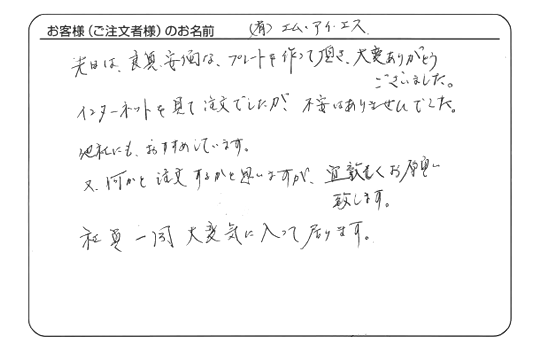 お客様（ご注文者様）のお名前 （有）エム・アイ・エス
先日は、良質、安価な、プレートを作って頂き、大変ありがとう
ございました。
インターネットを見て注文でしたが、不安はありませんでした。
他社にも、おすすめしています。
又、何かと注文するかと思いますが、宜敷くお願い
致します。
社員一同大変気に入って居ります。